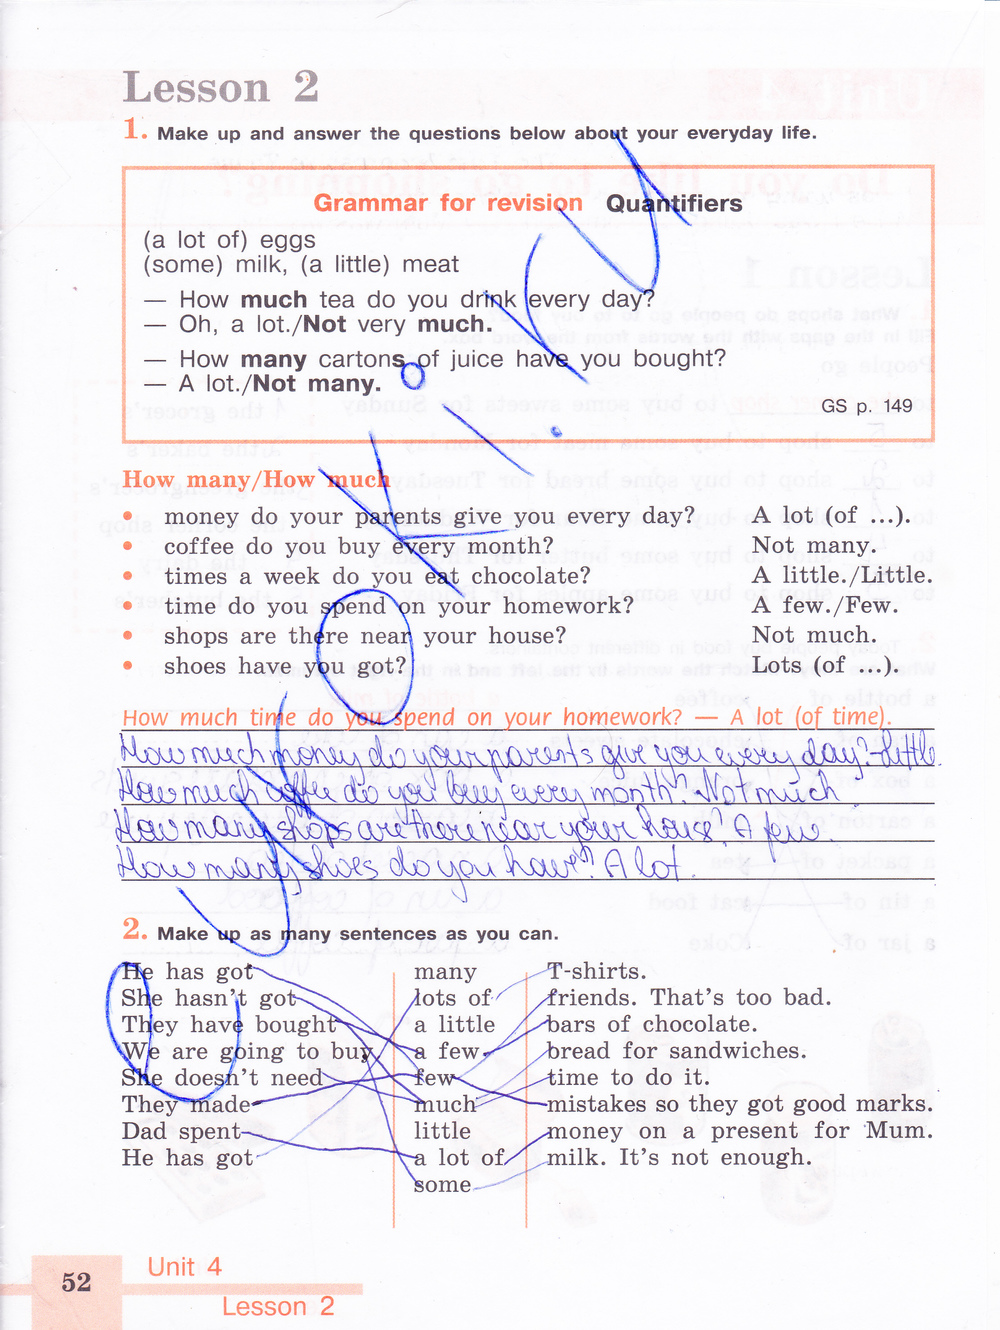 Lesson 2
1. Make up and answer the questions below about your everyday life.
Grammar for revision Quantifiers
(a lot of) eggs
(some) milk, (a little) meat
— How much tea do you drink every day?
— Oh, a lot./Not very much.
— How many cartons of juice have you bought?
— A lot./Not many.
GS p. 149
How many/How much
• money do your parents give you every day? A lot (of ...).
• coffee do you buy every month? Not many.
• times a week do you eat chocolate? A little./Little.
time do you spend on your homework? A few./Few.
• shops are there near your house? Not much.
• shoes have you got? Lots (of ...).
How much time do you spend on your homework? — A lot (of time).
How much money do your parents give you every day? - Little.
How much coffee do you buy every month? Not much
How many shops are there near your house? A few
How many shoes do you have? A lot.
2. Make up as many sentences as you can.
He has got many T-shirts.
She hasn't got lots of friends. That's too bad.
They have bought a little bars of chocolate.
We are going to buy a few bread for sandwiches.
She doesn't need few time to do it.
They made much mistakes so they got good marks.
Dad spent little money on a present for Mum.
He has got a lot of milk. It's not enough.
some
Unit 4
52
Lesson 2